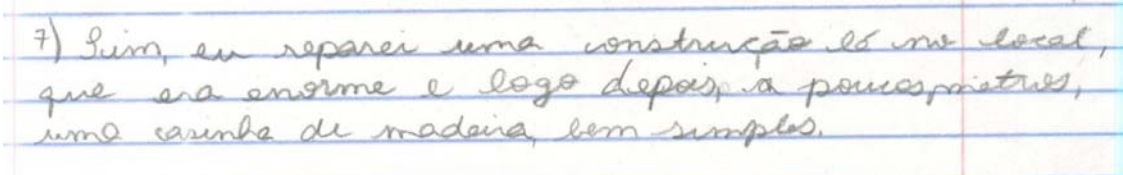 7) Sim, eu reparei uma construção lá no local,
que era enorme e logo depois, a poucos metros,
uma casinha de madeira, bem simples.